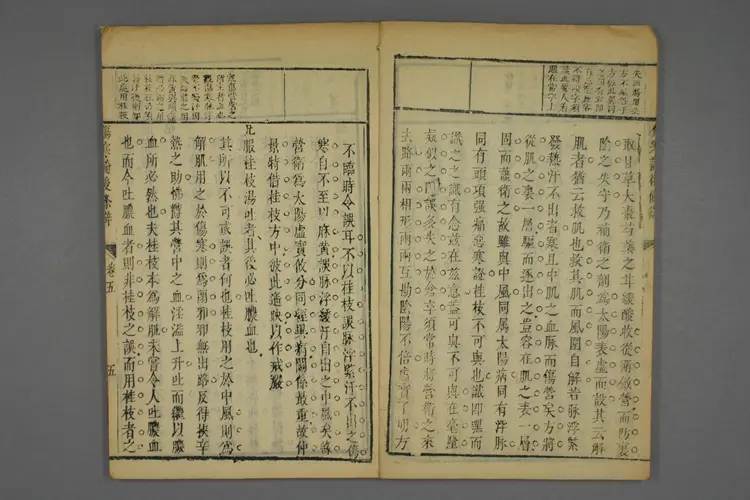 取甘草大棗芍藥之甘緩酸收從衛斂營而防裏
陰之失守乃補衛之劑爲太陽表虛而設其云解
肌者猶云救肌也救其肌而風圍自解若脉浮緊
發熱汗不出者寒且中肌之血脉而傷營矣方將
從肌之裏一層驅而逐出之豈容在肌之表一層
固而護衛之故雖與中風同屬太陽病同有浮脉
同有頭項强痛惡寒證桂枝不可與也識卽默而
識之之識有念茲在茲意蓋可與不可與在毫釐
疑似之間誤多失之於倉卒須當時將營衛之來
去路兩兩相形兩兩互勘陰陽不倍虛實了明方
不臨時令誤耳不以桂枝誤脉浮緊汗不出之傷
寒自不至以麻黃誤脉浮緩汗自出之中風矣蓋
營衛爲太陽虛實攸分同經異病關係最重故仲
景特借桂枝方中彼此遙映以作戒嚴
凡服桂枝湯吐者其後必吐膿血也
其所以不可或誤者何也桂枝用之於中風則爲
解肌用之於傷寒則爲閉邪邪無出路反得挾辛
熱之助怫鬱其營中之血淫溢上升吐而繼以膿
血所必然也夫桂枝本爲解肌未嘗令人吐膿血
也而今吐膿血者則非桂枝之誤而用桂枝者之
傷寒論後條辨
卷五
五